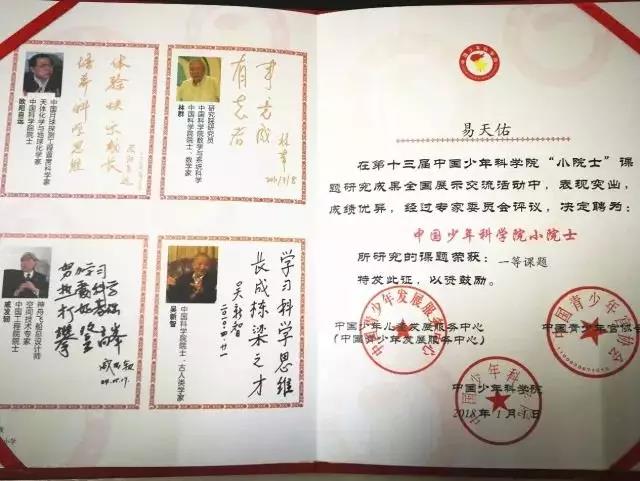 体验快乐成长
培养科学思维
中国月球探测工程首席科学家
天体化学与地球化学家
中国科学院院士
欧阳自远
有志者
事竟成
林群
研究院研究员
中国科学院数学与系统科学
中国科学院院士、数学家
林群
努力学习
打好基础
神舟飞船总设计师
空间技术专家
中国工程院院士
戚发轫
学习科学思维
长成栋梁之才
吴新智
中国科学院院士、古人类学家
吴新智
易天佑
在第十三届中国少年科学院“小院士”课
题研究成果全国展示交流活动中，表现突出，
成绩优异，经过专家委员会评议，决定聘为：
中国少年科学院小院士
所研究的课题荣获：一等课题
特发此证，以资鼓励。
中国少年儿童发展服务中心
（中国青少年发展服务中心）
中国青少年宫协会
中国少年科学院
2018年1月
小学